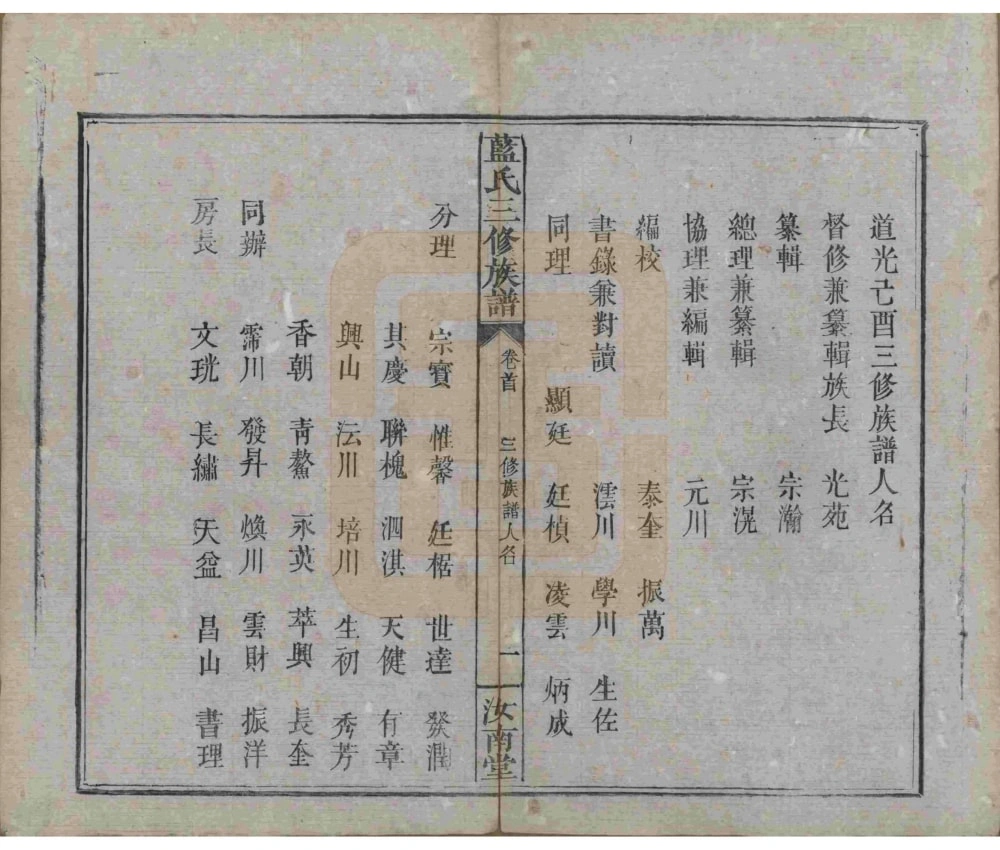 道光己酉三修族譜人名
督修兼纂輯族長 光苑
纂輯 宗瀚
總理兼纂輯 宗滉
協理兼編輯 元川
編校 泰奎 振萬
書錄兼對讀 澐川 學川 生佐
同理 顯廷 廷楨 凌雲 炳成
藍氏三修族譜 卷首 三修族譜人名 一 汝南堂
分理 宗寶 惟馨 廷椐 世達 發潤
其慶 聯槐 泗淇 天健 有章
興山 沄川 培川 生初 秀芳
香朝 青鰲 永英 萃興 長奎
同辦 霈川 發昇 煥川 雲財 振洋
房長 文珖 長繡 天益 昌山 書理